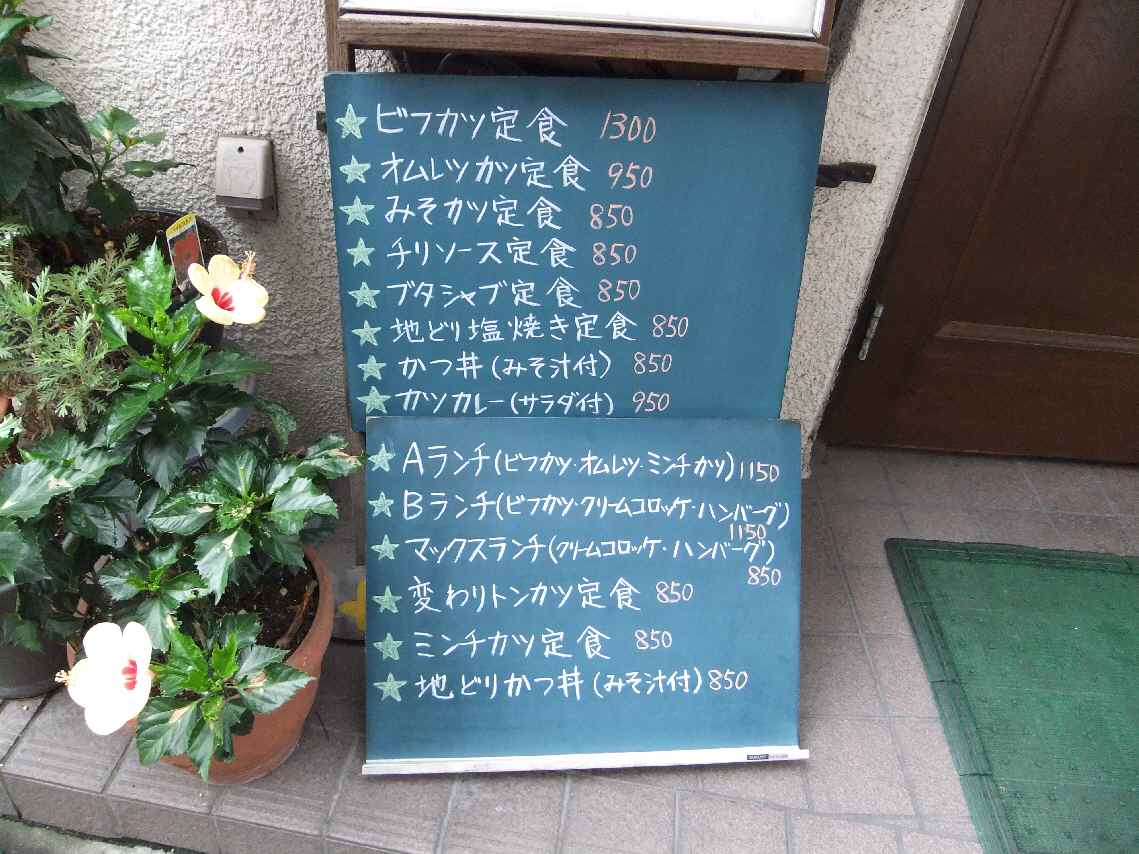 ビフカツ定食 1300
オムレツカツ定食 950
みそカツ定食 850
チリソース定食 850
ブタシャブ定食 850
地どり塩焼き定食 850
かつ丼(みそ汁付) 850
カツカレー(サラダ付) 950
Aランチ(ビフカツ・オムレツ・ミンチカツ) 1150
Bランチ(ビフカツ・クリームコロッケ・ハンバーグ)
1150
マックスランチ(クリームコロッケ・ハンバーグ)
850
変わりトンカツ定食 850
ミンチカツ定食 850
地どりかつ丼(みそ汁付) 850